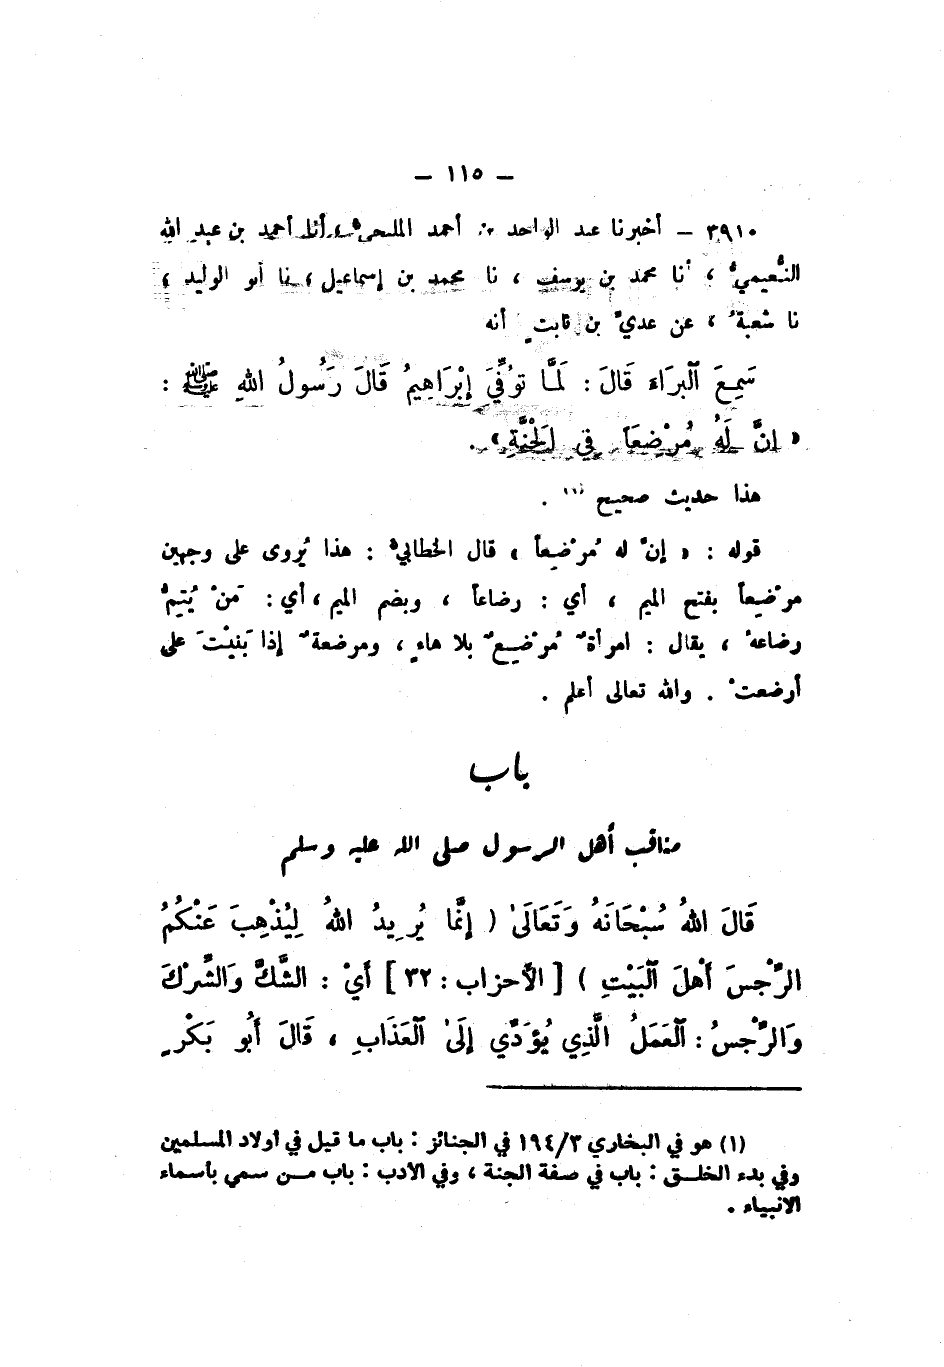 — ١١٥ —
٣٩١٠ — أخبرنا عبد الواحد بن أحمد المليحيُّ، أنا أحمد بن عبد الله
النُّعيميُّ ، أنا محمد بن يوسف ، نا محمد بن إسماعيل ، نا أبو الوليد ،
نا شعبةُ ، عن عديِّ بن ثابتٍ أنه
سَمِعَ ٱلْبَرَاءَ قَالَ : لَمَّا تُوُفِّيَ إِبْرَاهِيمُ قَالَ رَسُولُ اللهِ ﷺ :
« إِنَّ لَهُ مُرْضِعَاً فِي الْجَنَّةِ » .
هذا حديث صحيح (١) .
قوله : « إنَّ له مُرْضِعاً » قال الخطابيُّ : هذا يُروى على وجهين
مَرْضِعاً بفتح الميم ، أي : رضاعاً ، وبضم الميم ، أي : مَنْ يُتِمُّ
رضاعهُ ، يقال : امرأةٌ مُرْضِعٌ بلا هاءٍ ، ومرضعةٌ إذا بَنَيْتَ على
أرضعتْ . والله تعالى أعلم .
باب
مناقب أهل الرسول صلى الله عليه وسلم
قَالَ اللهُ سُبْحَانَهُ وَتَعَالَىٰ ( إِنَّمَا يُرِيدُ اللهُ لِيُذْهِبَ عَنْكُمُ
الرِّجْسَ أَهْلَ ٱلْبَيْتِ ) [ الأَحزاب : ٣٢ ] أَيْ : الشَّكَّ وَالشِّرْكَ
وَالرِّجْسُ : ٱلْعَمَلُ الَّذِي يُؤَدِّي إِلَىٰ ٱلْعَذَابِ ، قَالَ أَبُو بَكْرٍ
(١) هو في البخاري ١٩٤/٣ في الجنائز : باب ما قيل في أولاد المسلمين
وفي بدء الخلـق : باب في صفة الجنة ، وفي الأدب : باب مـن سمي بأسماء
الانبياء .